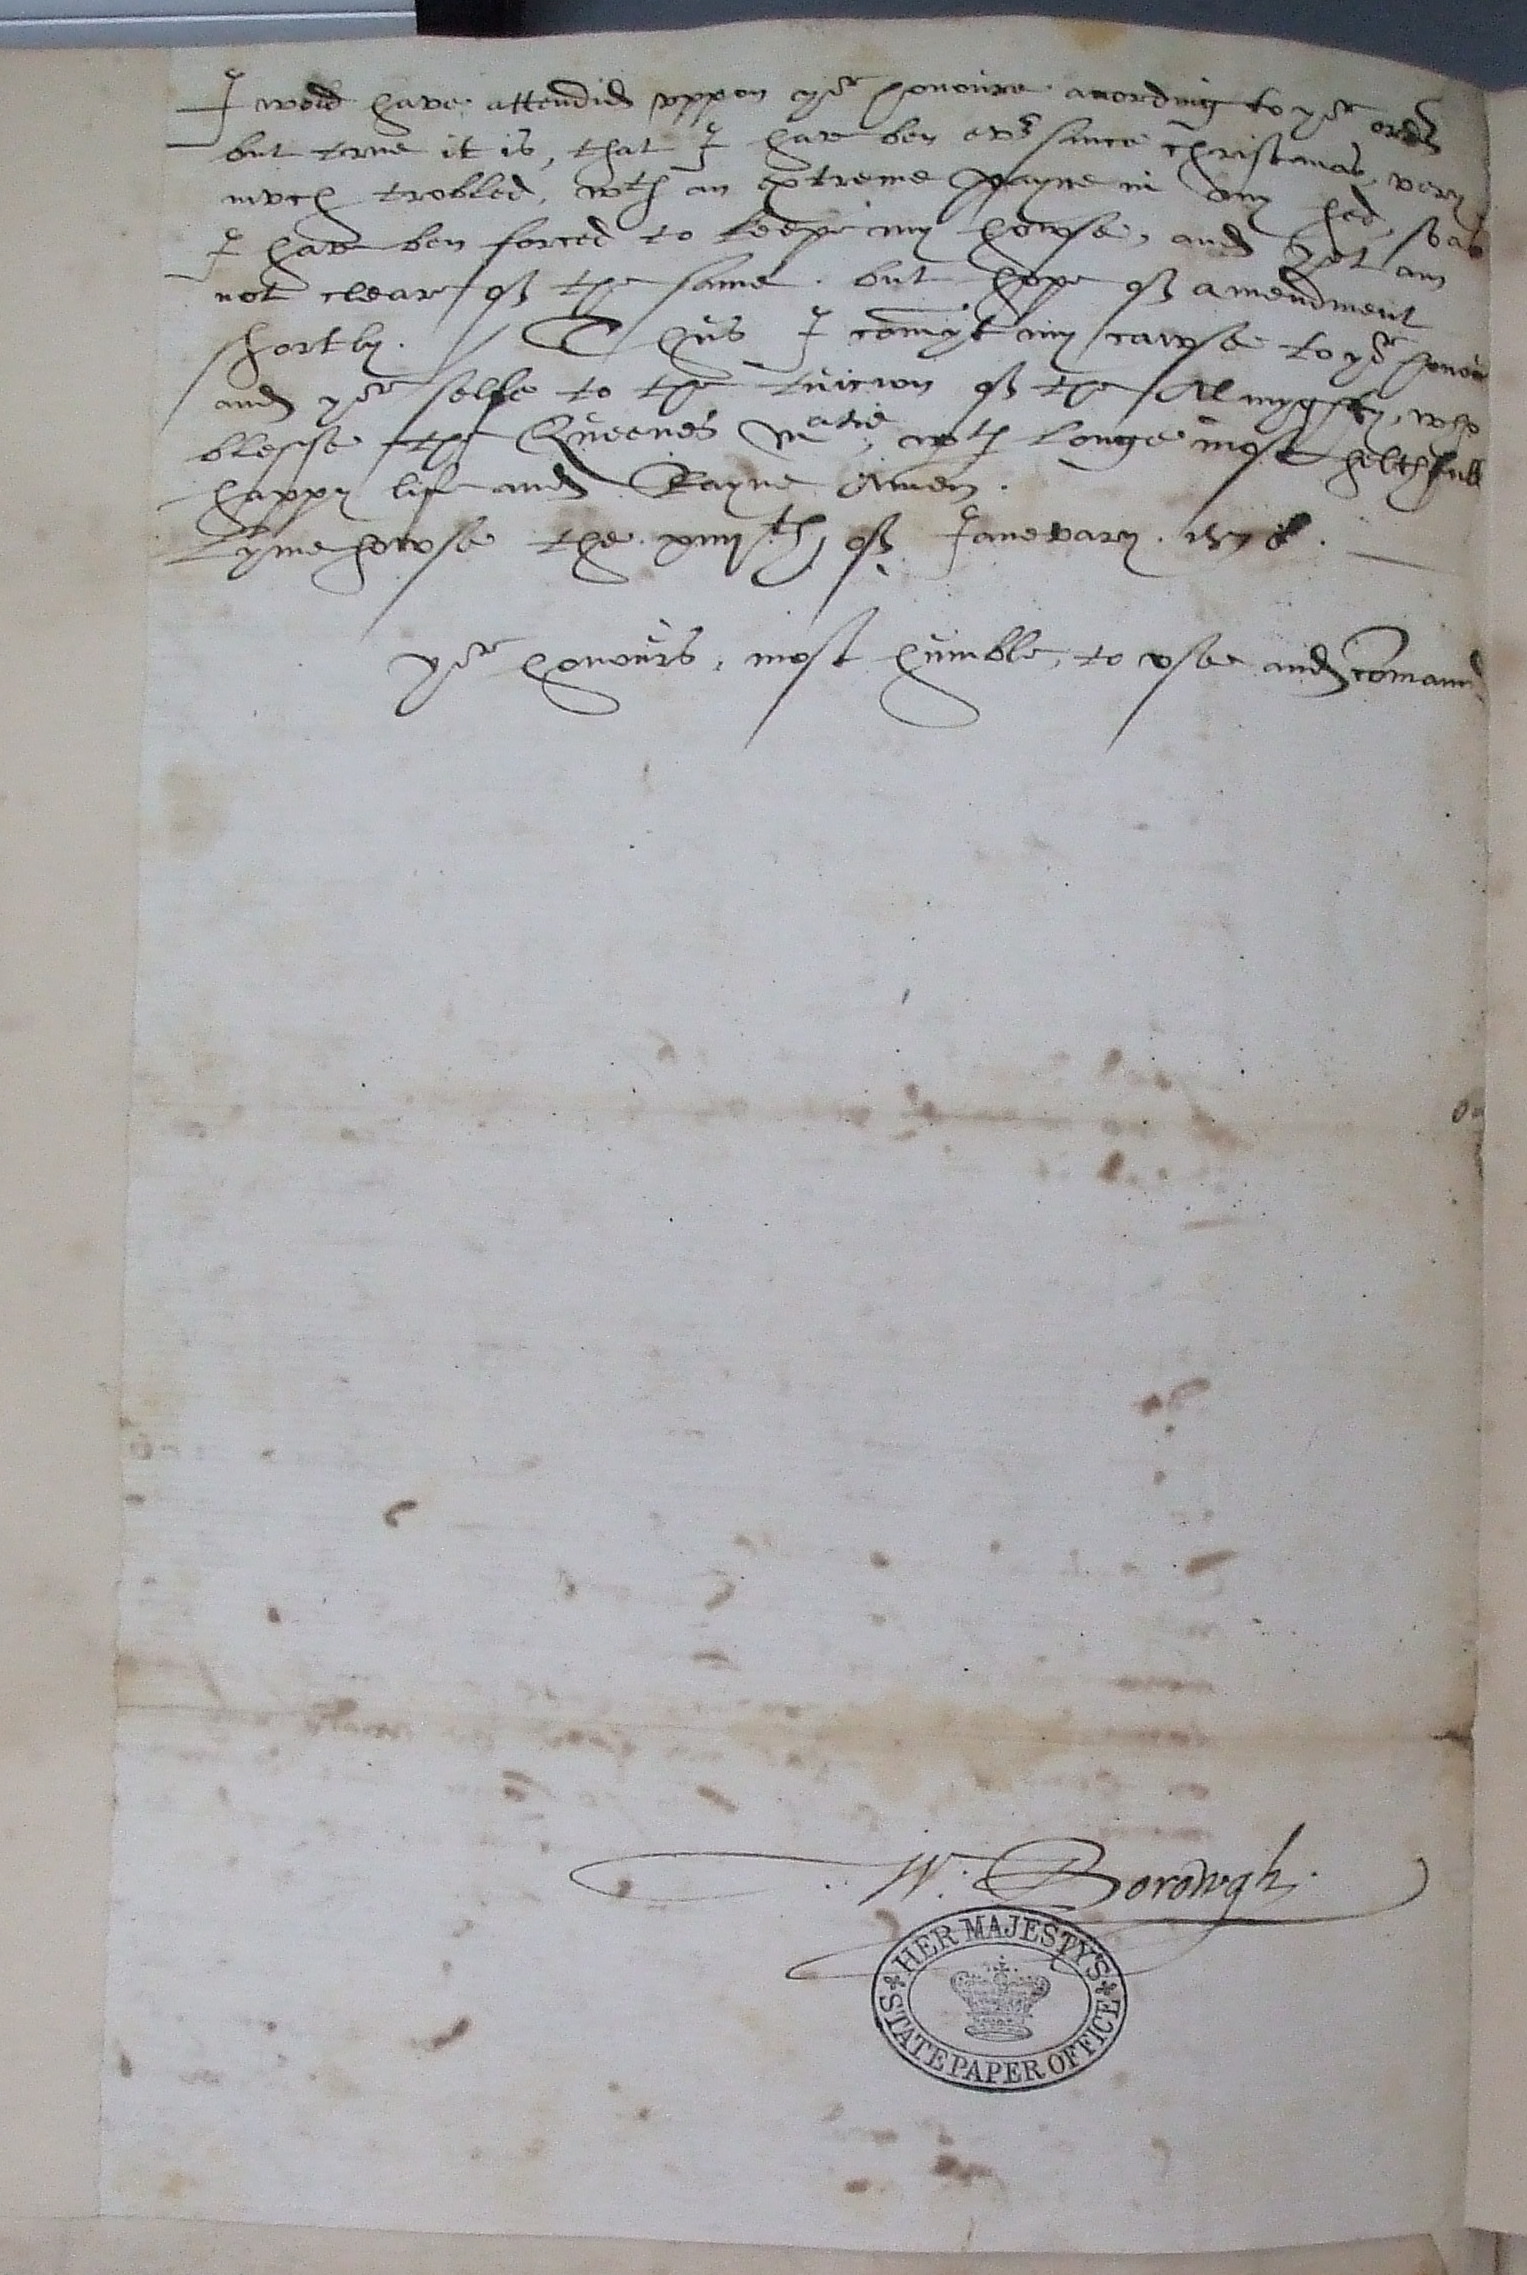 I wold have attendid vppon yor honoure acording to yor order
but trew it is, that I have ben ever since christemas, very
mvch trobled, wth an extreme payne in my hed, so as
I have ben forced to keepe my howse, and yet am
not cleare of the same. but hope of amendment
shortly. Thus I comyt my cawse to yor honor
and yor selfe to the tuicion of the Almyghty, who
blesse the Queenes Matie, wth longe most helthfull
happy lif and Rayne Amen.
Lymehowse the xiiijth of Janevary. 1578.
yor honours, most humble, to vse and comaund
W. Borowgh.
HER MAJESTY'S
STATE PAPER OFFICE